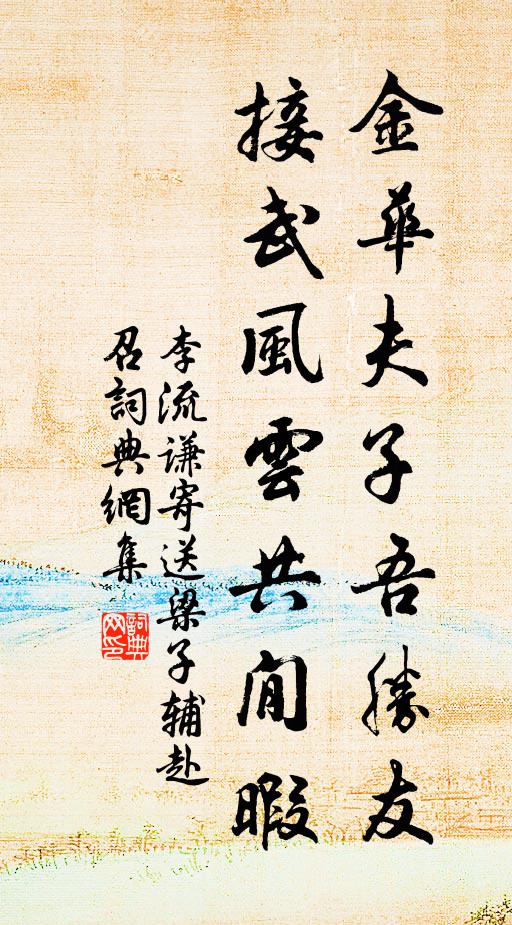 金華夫子吾勝友
接武風雲共閒暇
李流谦寄送梁子辅赴
召詞典網集
詞典
网印